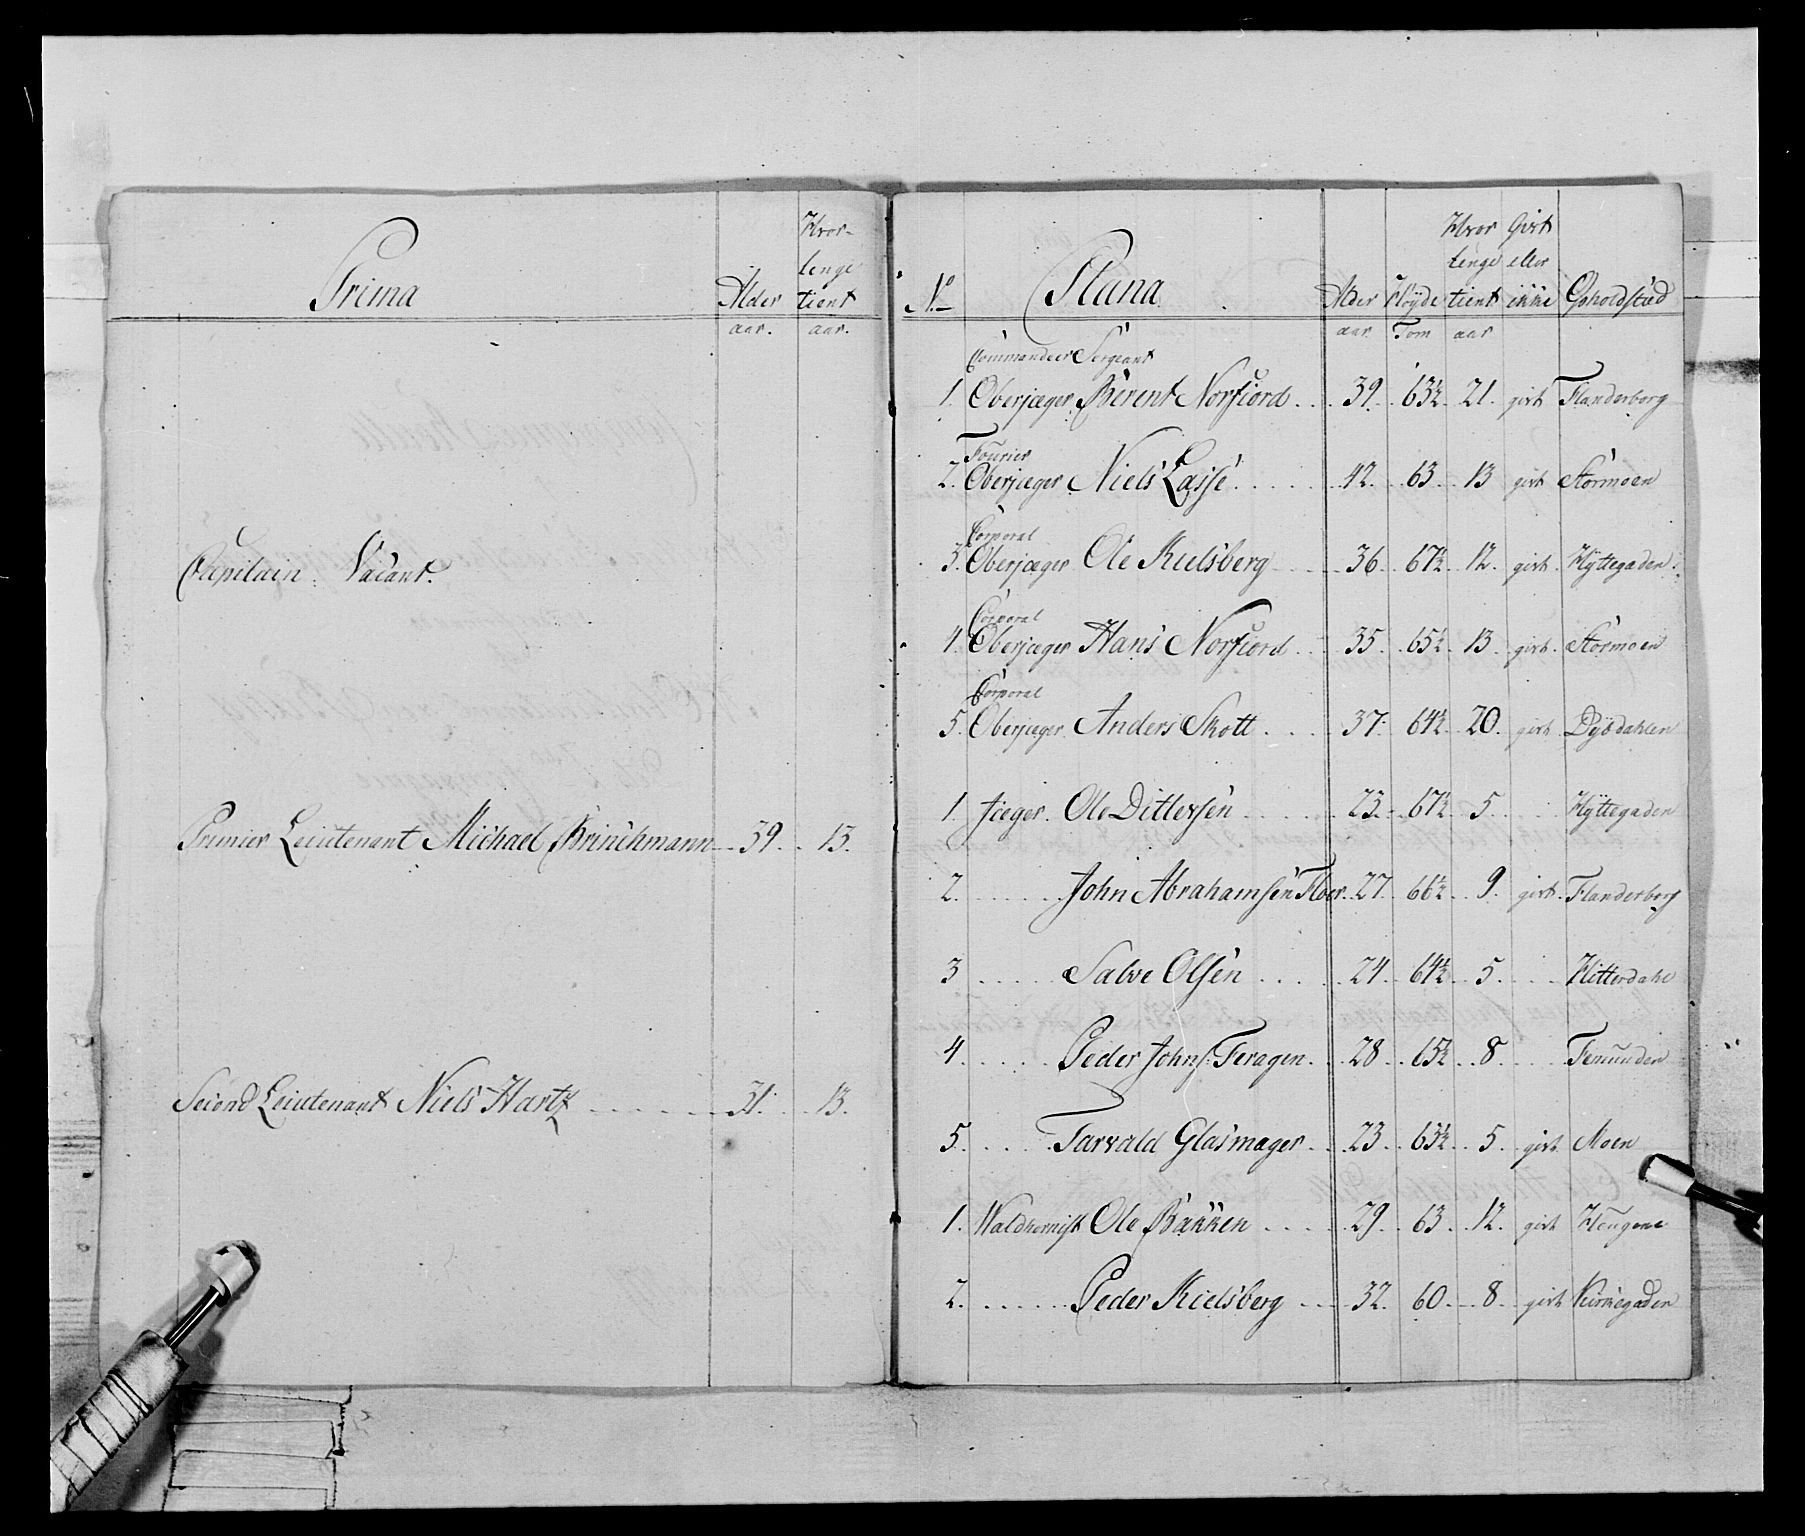 Prima
Alder
Hvor-
lenge
tient
aar. aar.
Capitain Vacant.
Premier Leiutenant Michael Brinchmann 39. 13.
Second Leiutenant Niels Hartz 31. 13.
No Plana Alder Høyde Hvor Lenge tient Givt eller ikke Opholdstæd
aar Tom aar
Commandeer Sergeant
1. Oberjæger Berent Norfiord 39. 63½ 21. givt Flanderborg
Fourier
2. Oberjæger Niels Lasse 42. 63 13 givt Stormoen
Corporal
3. Oberjæger Ole Kielsberg 36. 67½ 12. givt. Hyttegaden.
Corporal
4. Oberjæger Hans Norfiord 35. 65½ 13. givt. Stormoen
Corporal
5. Oberjæger Anders Skott 37. 64½ 20. givt Dybdahlen
1. Jæger Ole Ditlevsen 23. 67½ 5. Hyttegaden
2. John Abrahamsen Floer 27. 66½ 9. givt. Flanderborg
3 Salve Olsen 24. 64½ 5. Hitterdahl
4. Peder Johns: Feragen 28. 65½ 8. Femunden
5. Tarvald Glasmager 23. 63½ 5. givt Moen
1. Waldhornist Ole Bakken 29. 63. 12. givt Hougene
2. Peder Kielsberg 32. 60. 8. givt Kirkegaden